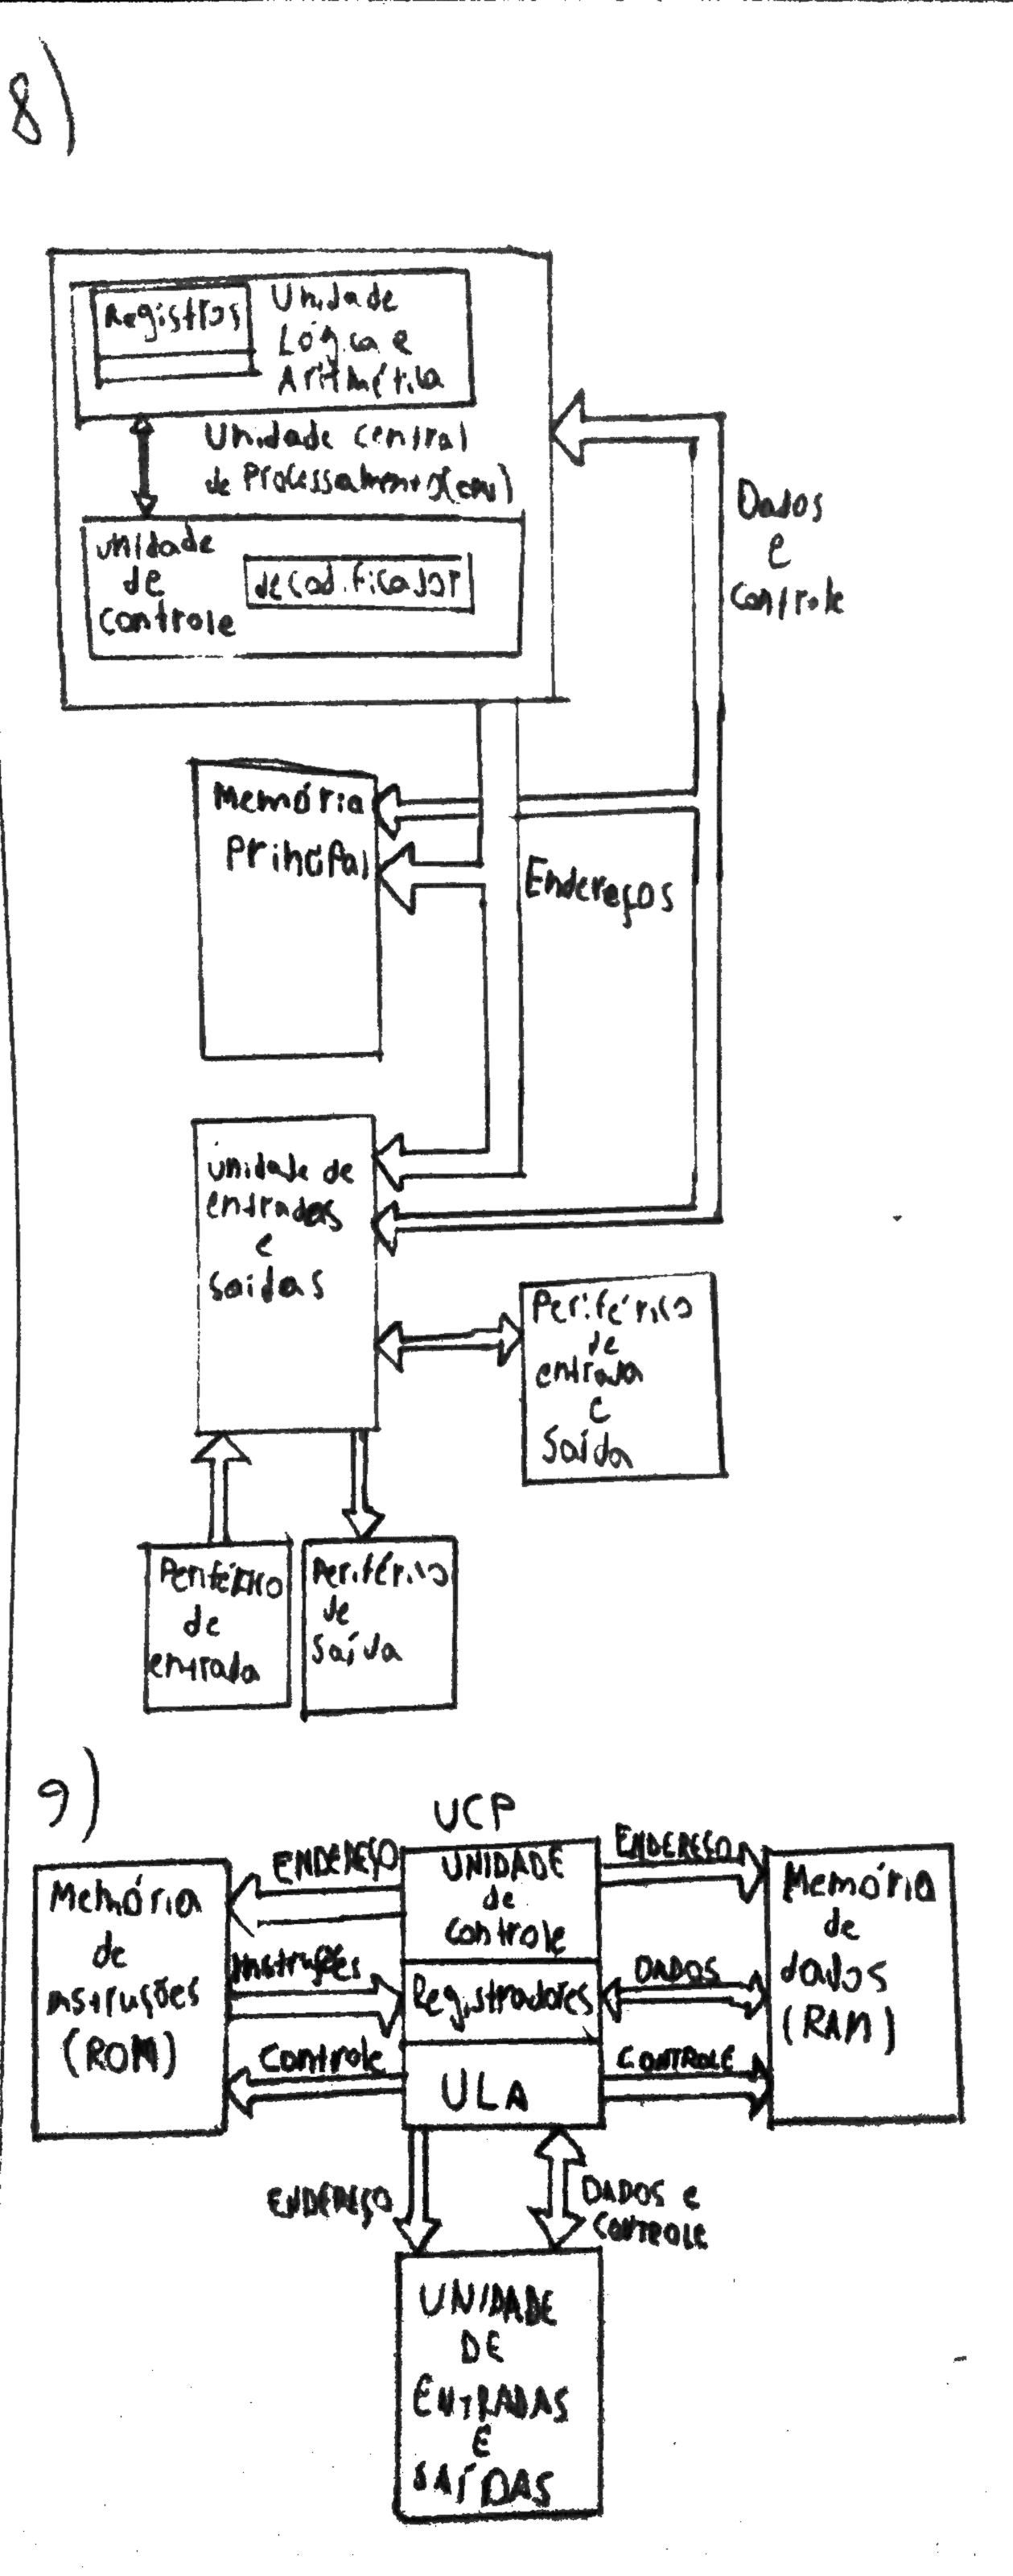 8)
Registros
Unidade
Lógica e
Aritmética
Unidade central
de Processamento (CPU)
Unidade
de
controle
decodificador
Dados
e
Controle
Memória
Principal
Endereços
Unidade de
entradas
e
Saídas
Periférico
de
entrada
e
Saída
Periférico
de
entrada
Periférico
de
Saída
9)
UCP
Memória
de
instruções
(ROM)
ENDEREÇO
Instruções
Controle
UNIDADE
de
Controle
Registradores
ULA
ENDEREÇO
DADOS
CONTROLE
Memória
de
dados
(RAM)
ENDEREÇO
DADOS e
CONTROLE
UNIDADE
DE
ENTRADAS
E
SAÍDAS